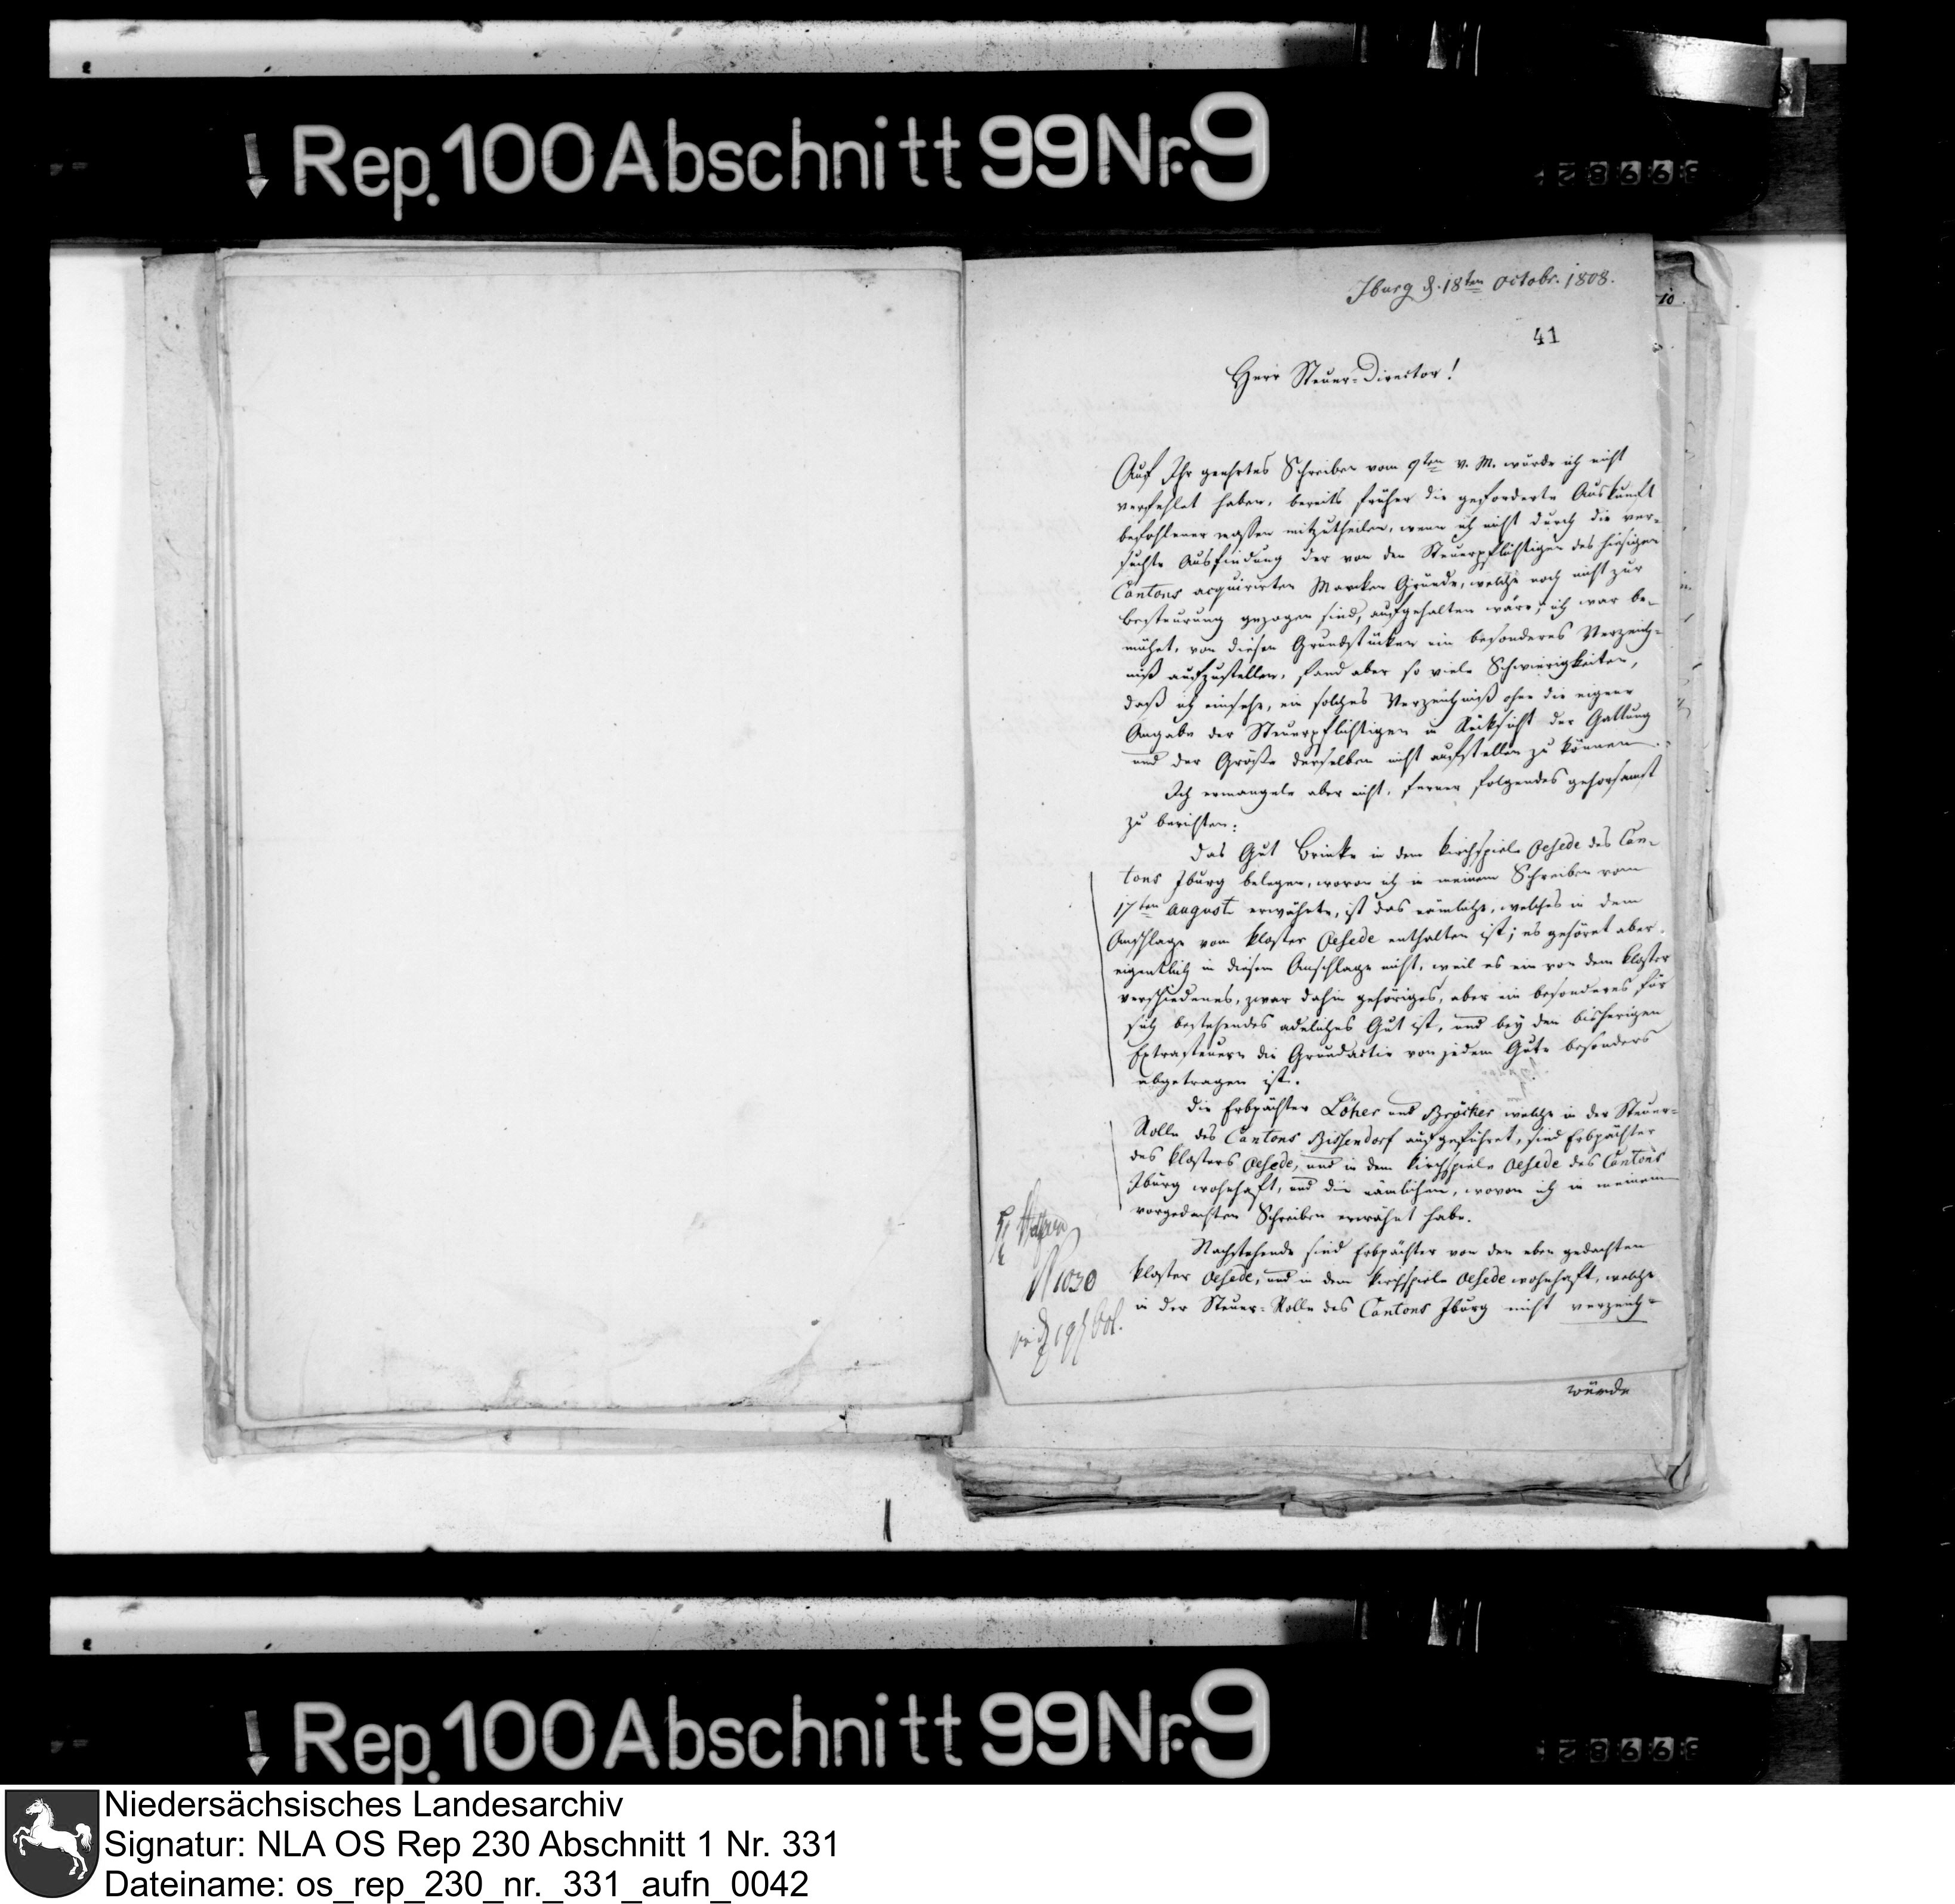 Rep. 100 Abschnitt 99 Nr. 9
Iburg d. 18ten Octobr. 1808.
10
41
Herr Steuer-Director!
Auf Ihr geehrtes Schreiben vom 9ten v. M. würde ich nicht
verfehlet haben, bereits früher die geforderte Auskunft
befohlener massen mitzutheilen, wenn ich nicht durch die ver-
suchte Ausfindung der von den Steuerpflichtigen des hiesigen
Cantons acquirirten Marken Gründe, welche noch nicht zur
Besteurung gezogen sind, aufgehalten wäre; ich war be-
mühet, von diesen Grundstücken ein besonderes Verzeich-
niß aufzustellen, fand aber so viele Schwierigkeiten,
daß ich einsehe, ein solches Verzeichniß ohne die eigene
Angabe der Steuerpflichtigen in Rücksicht der Gattung
und der Größe derselben nicht aufstellen zu können.
Ich ermangele aber nicht, ferner folgendes gehorsamst
zu berichten:
Das Gut Brinke in dem Kirchspiele Oesede des Can-
tons Iburg belegen, wovon ich in meinem Schreiben vom
17ten August erwähnte, ist das nämliche, welches in dem
Anschlage vom Kloster Oesede enthalten ist; es gehöret aber
eigentlich in diesem Anschlage nicht, weil es ein von dem Kloster
verschiedenes, zwar dahin gehöriges, aber ein besonderes für
sich bestehendes adeliches Gut ist, und bey den bisherigen
Extrasteuern die Grundactie von jedem Gute besonders
abgetragen ist.
Die Erbpächter Löher und Bröcker welche in der Steuer-
Rolle des Cantons Bissendorf aufgeführet, sind Erbpächter
des Klosters Oesede, und in dem Kirchspiele Oesede des Cantons
Iburg wohnhaft, und die nämlichen, wovon ich in meinem
vorgedachten Schreiben erwähnt habe.
Nachstehende sind Erbpächter von den eben gedachten
Kloster Oesede, und in dem Kirchspiele Oesede wohnhaft, welche
in der Steuer-Rolle des Cantons Iburg nicht verzeich-
N 1030
würde
Rep. 100 Abschnitt 99 Nr. 9
Niedersächsisches Landesarchiv
Signatur: NLA OS Rep 230 Abschnitt 1 Nr. 331
Dateiname: os_rep_230_nr._331_aufn_0042